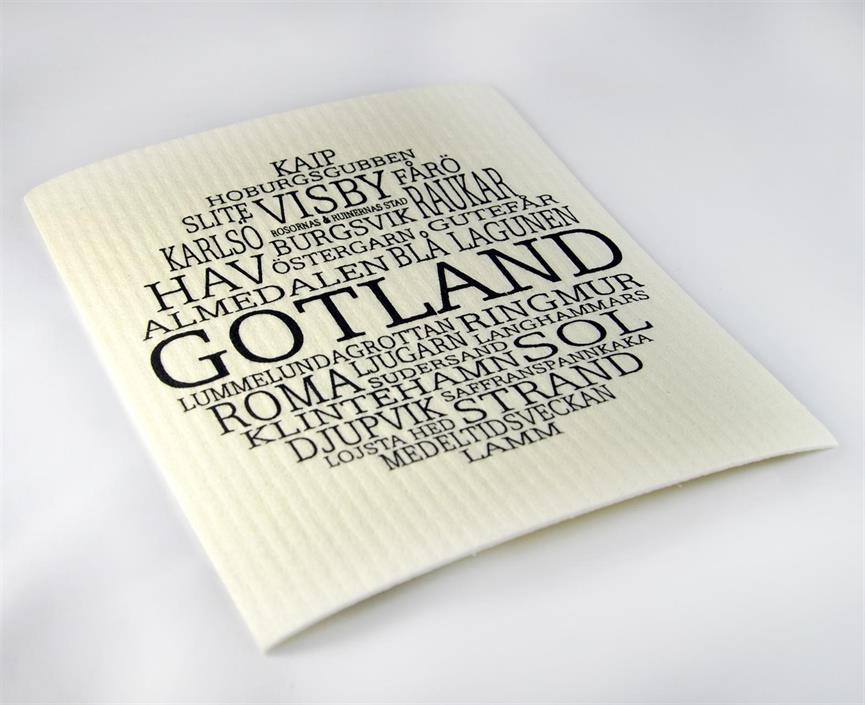 KAIP
HOBURGSGUBBEN
SLITE VISBY FÅRÖ
ROSORNAS & RUINERNAS STAD
KARLSÖ BURGSVIK RAUKAR
HAV ÖSTERGARN GUTEFÅR
ALMEDALEN BLÅ LAGUNEN
GOTLAND
LUMMELUNDAGROTTAN RINGMUR
ROMA LJUGARN LANGHAMMARS
SUDERSAND SOL
KLINTEHAMN SAFFRANSPANNKAKA
DJUPVIK STRAND
LOJSTA HED
MEDELTIDSVECKAN
LAMM